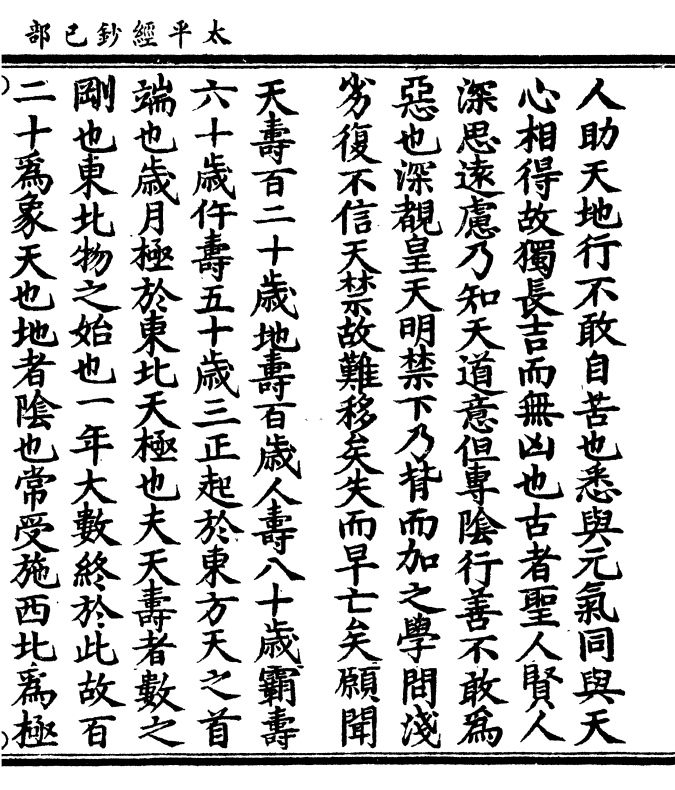 太平經鈔已部
人助天地行不敢自苦也悉與元氣同與天
心相得故獨長吉而無凶也古者聖人賢人
深思遠慮乃知天道意但專陰行善不敢爲
惡也深覩皇天明禁下乃背而加之學問淺
劣復不信天禁故難移矣失而早亡矣願聞
天壽百二十歲地壽百歲人壽八十歲霸壽
六十歲仵壽五十歲三正起於東方天之首
端也歲月極於東北天極也夫天壽者數之
剛也東北物之始也一年大數終於此故百
二十爲象天也地者陰也常受施西北爲極